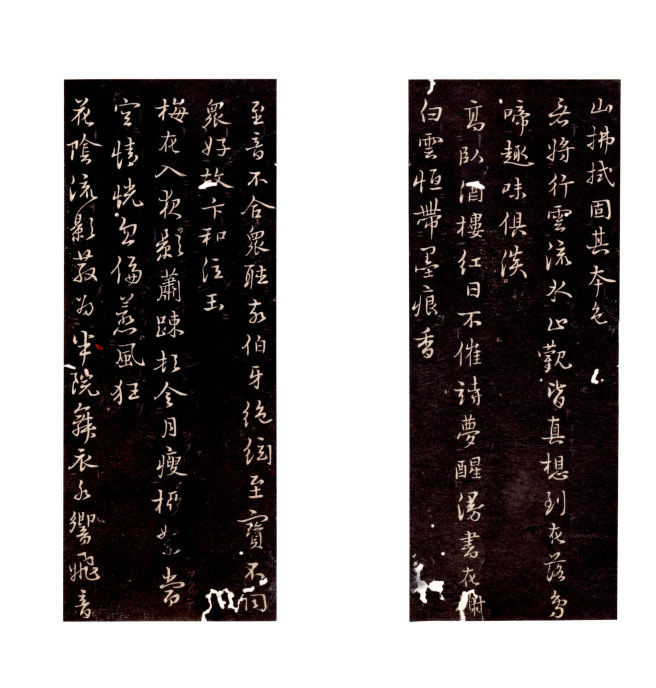 山拂拭固其本色
將行雲流水止觀皆真想到花落鳥
啼趣味俱淡
高臥酒樓紅日不催詩夢醒漫書花榭
白雲恒帶墨痕香
至音不合眾聽故伯牙絕絃至寶不同
眾好故卞和泣玉
梅花入夜影蕭疎頓令月瘦柳絮當
空情恍忽偏惹風狂
花陰流影散為半院舞衣水響飛音